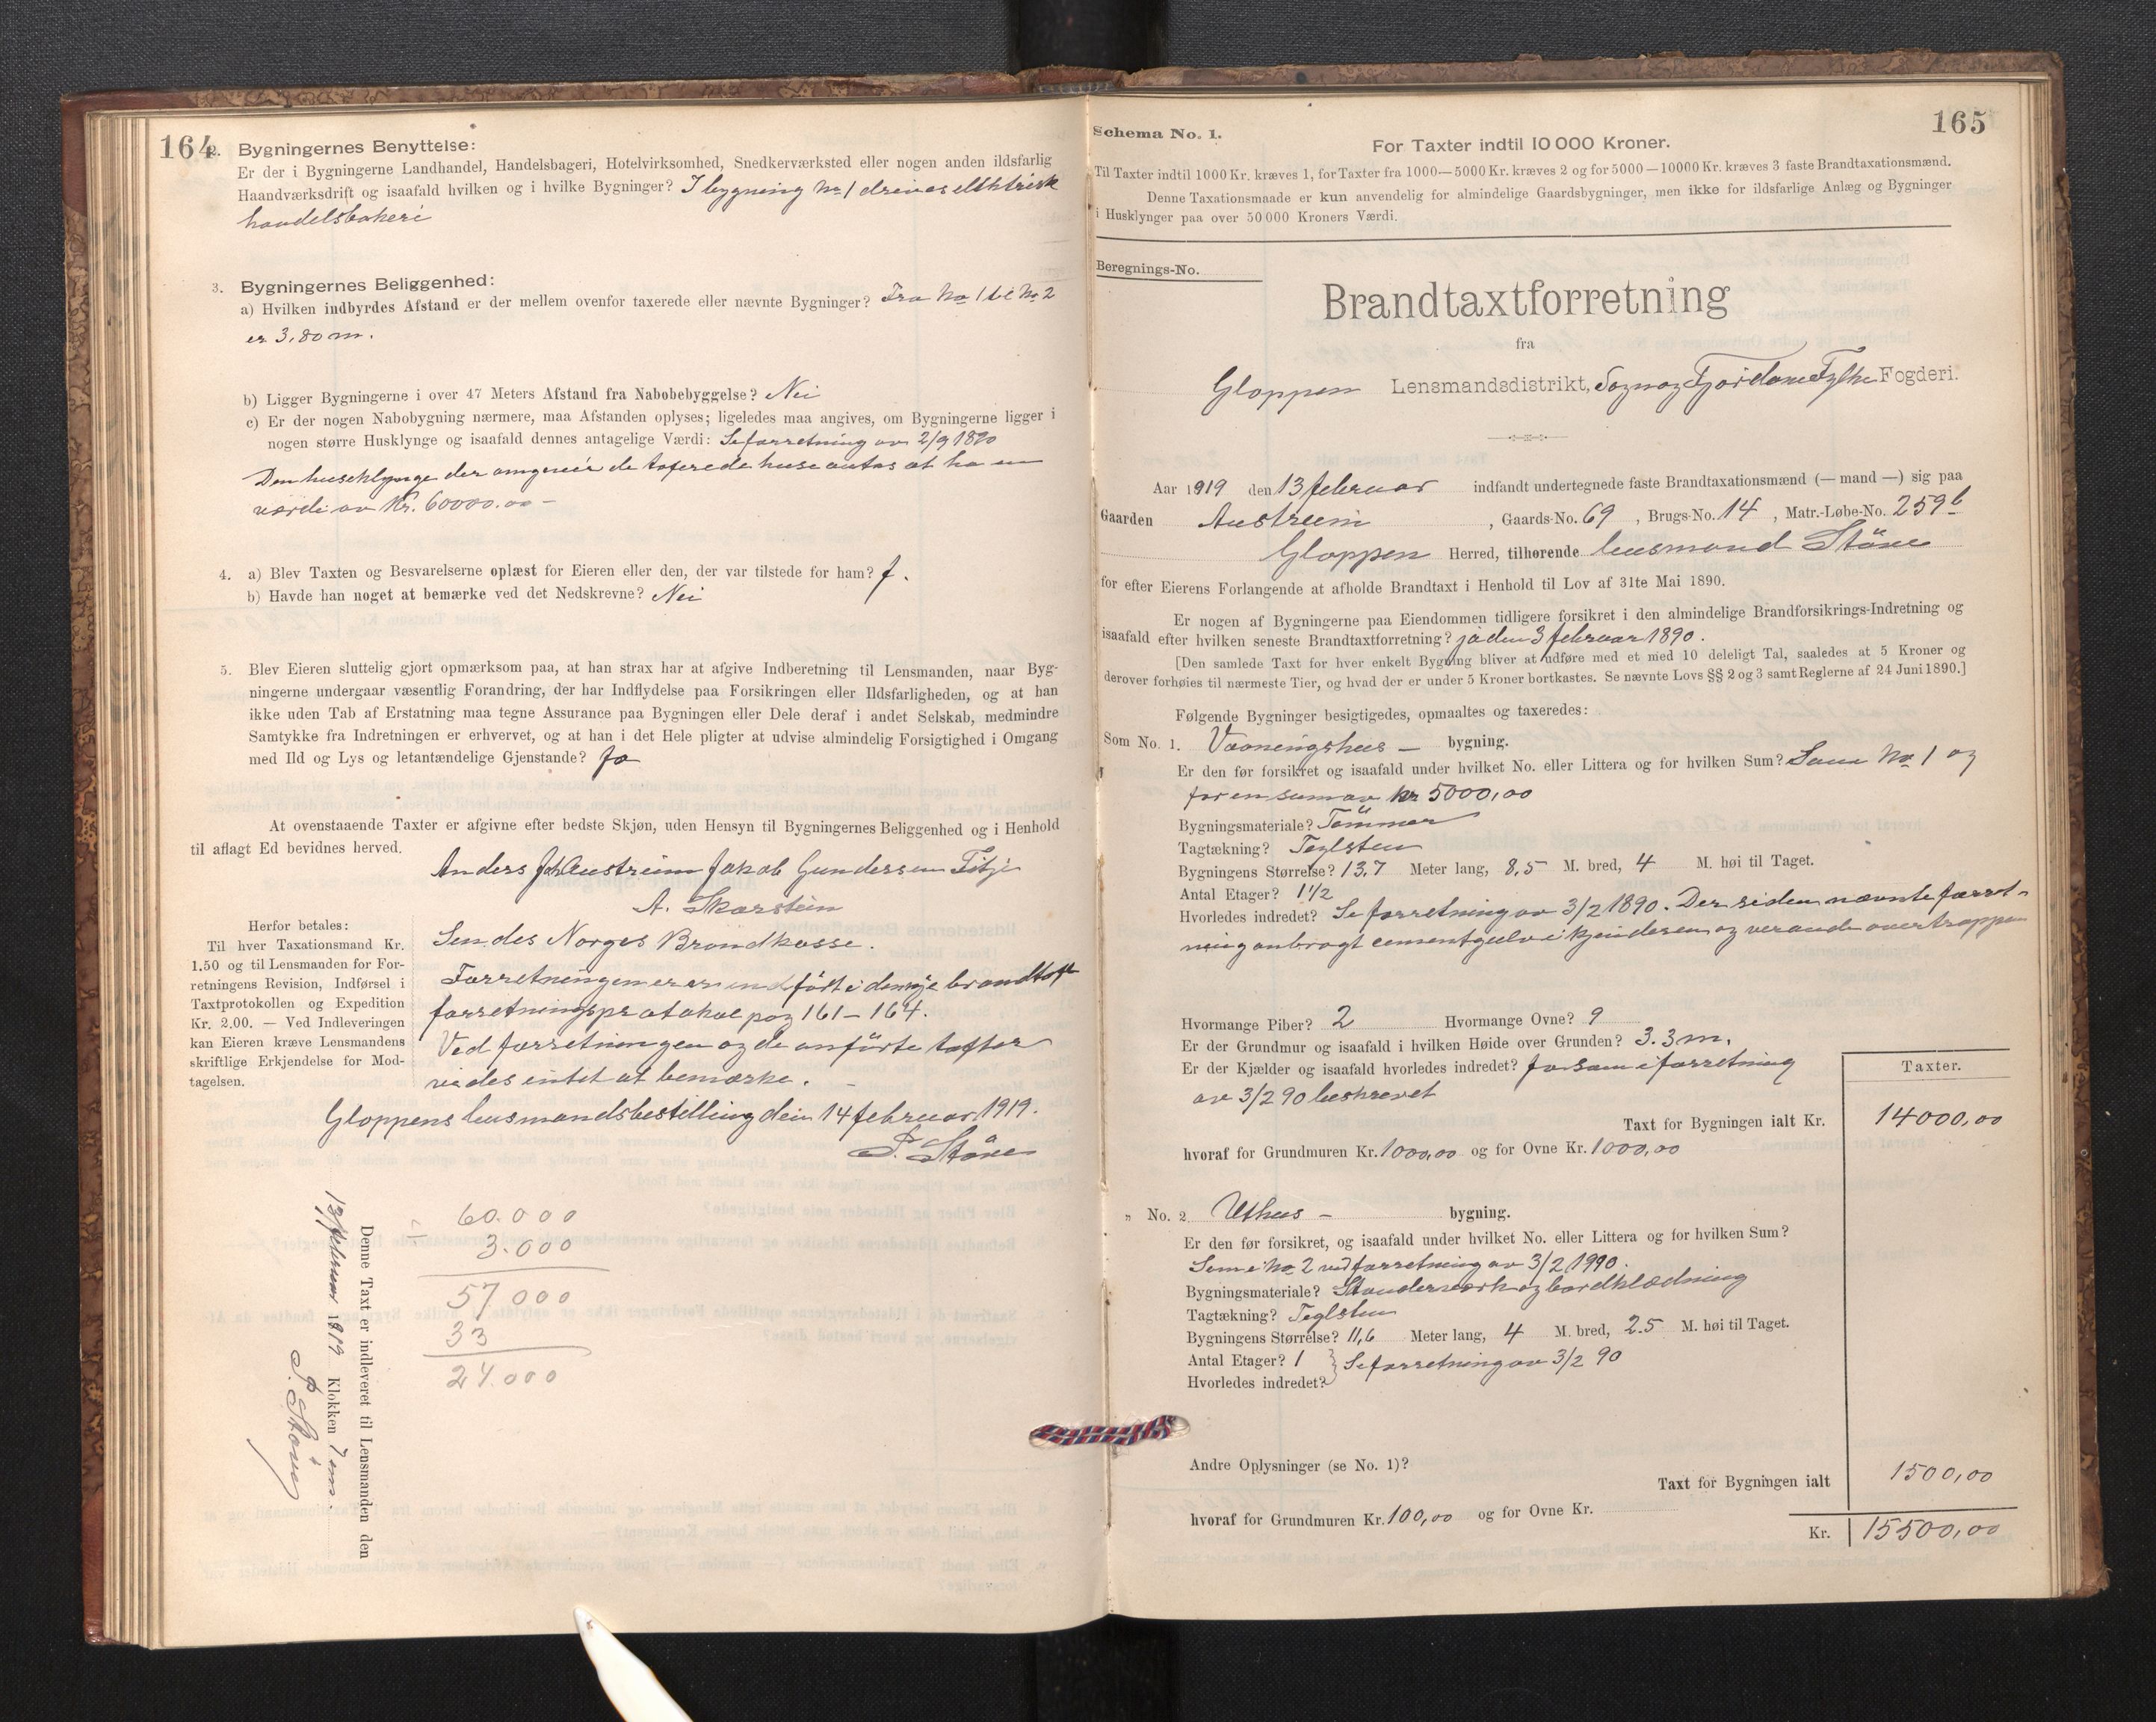 164
2. Bygningernes Benyttelse:
Er der i Bygningerne Landhandel, Handelsbageri, Hotelvirksomhed, Snedkerværksted eller nogen anden ildsfarlig
Haandværksdrift og isaafald hvilken og i hvilke Bygninger? I bygning No 1 drives elektrisk
handelsbakeri
3. Bygningernes Beliggenhed:
a) Hvilken indbyrdes Afstand er der mellem ovenfor taxerede eller nævnte Bygninger? Fra No 1 til No 2
er 3,80 m.
b) Ligger Bygningerne i over 47 Meters Afstand fra Nabobebyggelse? Nei
c) Er der nogen Nabobygning nærmere, maa Afstanden oplyses; ligeledes maa angives, om Bygningerne ligger i
nogen større Husklynge og isaafald dennes antagelige Værdi: Se forretning av 2/9 1890
Den huseklynge der omgiver de taxerede huse antas at ha en
værdi av Kr. 60000.00 –
4. a) Blev Taxten og Besvarelserne oplæst for Eieren eller den, der var tilstede for ham? J.
b) Havde han noget at bemærke ved det Nedskrevne? Nei
5. Blev Eieren sluttelig gjort opmærksom paa, at han strax har at afgive Indberetning til Lensmanden, naar Byg-
ningerne undergaar væsentlig Forandring, der har Indflydelse paa Forsikringen eller Ildsfarligheden, og at han
ikke uden Tab af Erstatning maa tegne Assurance paa Bygningen eller Dele deraf i andet Selskab, medmindre
Samtykke fra Indretningen er erhvervet, og at han i det Hele pligter at udvise almindelig Forsigtighed i Omgang
med Ild og Lys og letantændelige Gjenstande? Ja
At ovenstaaende Taxter er afgivne efter bedste Skjøn, uden Hensyn til Bygningernes Beliggenhed og i Henhold
til aflagt Ed bevidnes herved.
Anders J Austreim Jakob Gundersen Fitje
A. Skarstein
Herfor betales:
Til hver Taxationsmand Kr.
1.50 og til Lensmanden for For-
retningens Revision, Indførsel i
Taxtprotokollen og Expedition
Kr. 2.00. — Ved Indleveringen
kan Eieren kræve Lensmandens
skriftlige Erkjendelse for Mod-
tagelsen.
Sendes Norges Brandkasse.
Forretningen er indført i den nye brandtaxt
forretningsprotokol pag 161 – 164.
Ved forretningen og de anførte taxter
vides intet at bemærke. –
Gloppens lensmandsbestilling den 14 februar 1919.
P. Støve
60.000
3.000
57 000
33
24.000
Denne Taxt er indleveret til Lensmanden den
13 februar 1919 Klokken 7 em.
P. Støve
165
Schema No. 1.
For Taxter indtil 10 000 Kroner.
Til Taxter indtil 1000 Kr. kræves 1, for Taxter fra 1000—5000 Kr. kræves 2 og for 5000—10000 Kr. kræves 3 faste Brandtaxationsmænd.
Denne Taxationsmaade er kun anvendelig for almindelige Gaardsbygninger, men ikke for ildsfarlige Anlæg og Bygninger
i Husklynger paa over 50 000 Kroners Værdi.
Beregnings-No.
Brandtaxtforretning
fra
Gloppen Lensmandsdistrikt, Sogn og Fjordane Fylke Fogderi.
Aar 1919 den 13 februar indfandt undertegnede faste Brandtaxationsmænd (— mand —) sig paa
Gaarden Austreim, Gaards-No. 69, Brugs-No. 14, Matr.-Løbe-No. 259b
Gloppen Herred, tilhørende lensmand Støve
for efter Eierens Forlangende at afholde Brandtaxt i Henhold til Lov af 31te Mai 1890.
Er nogen af Bygningerne paa Eiendommen tidligere forsikret i den almindelige Brandforsikrings-Indretning og
isaafald efter hvilken seneste Brandtaxtforretning? ja den 3 februar 1890.
[Den samlede Taxt for hver enkelt Bygning bliver at udføre med et med 10 deleligt Tal, saaledes at 5 Kroner og
derover forhøies til nærmeste Tier, og hvad der er under 5 Kroner bortkastes. Se nævnte Lovs §§ 2 og 3 samt Reglerne af 24 Juni 1890.]
Følgende Bygninger besigtigedes, opmaaltes og taxeredes:
Som No. 1. Vaaningshus – bygning.
Er den før forsikret og isaafald under hvilket No. eller Littera og for hvilken Sum? Som No 1 og
for en sum av kr 5000,00
Bygningsmateriale? Tømmer
Tagtækning? Teglsten
Bygningens Størrelse? 13,7 Meter lang, 8,5 M. bred, 4 M. høi til Taget.
Antal Etager? 1 1/2
Hvorledes indredet? Se forretning av 3/2 1890. Der siden nævnte forret-
ning anbragt cementgulv i kjelderen og veranda over trappen
Hvormange Piber? 2 Hvormange Ovne? 9
Er der Grundmur og isaafald i hvilken Høide over Grunden? 3.3 m.
Er der Kjælder og isaafald hvorledes indredet? Ja som i forretning
av 3/2 90 beskrevet
Taxter.
Taxt for Bygningen ialt Kr. 14000,00
hvoraf for Grundmuren Kr. 1000,00 og for Ovne Kr. 1000,00
„ No. 2 Uthus – bygning.
Er den før forsikret, og isaafald under hvilket No. eller Littera og for hvilken Sum?
Som No 2 ved forretning av 3/2 1990.
Bygningsmateriale? Standerverk og bordklædning
Tagtækning? Teglsten
Bygningens Størrelse? 11,6 Meter lang, 4 M. bred, 2.5 M. høi til Taget.
Antal Etager? 1
Hvorledes indredet? Se forretning av 3/2 90
Andre Oplysninger (se No. 1)?
Taxt for Bygningen ialt 1500,00
hvoraf for Grundmuren Kr. 100,00 og for Ovne Kr.
Kr. 15500,00